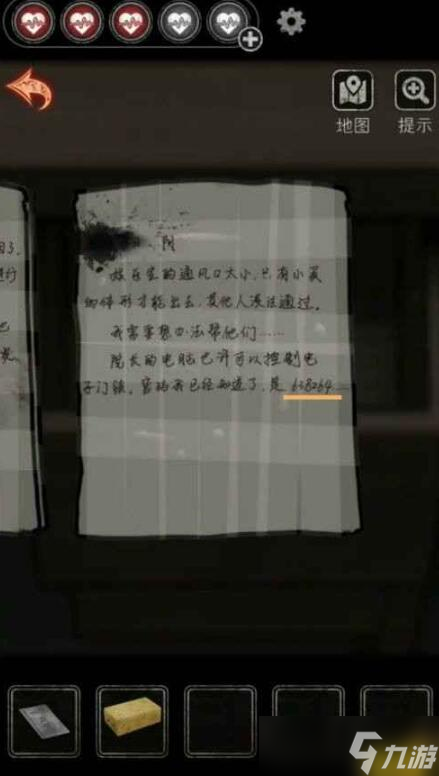 地图
提示
娱乐室的通风口太小，只有小
的体形才能出去，其他人没法通过。
我需要想办法帮他们……
院长的电脑也许可以控制电
子门锁，密码我已经知道了，是 638264
九游